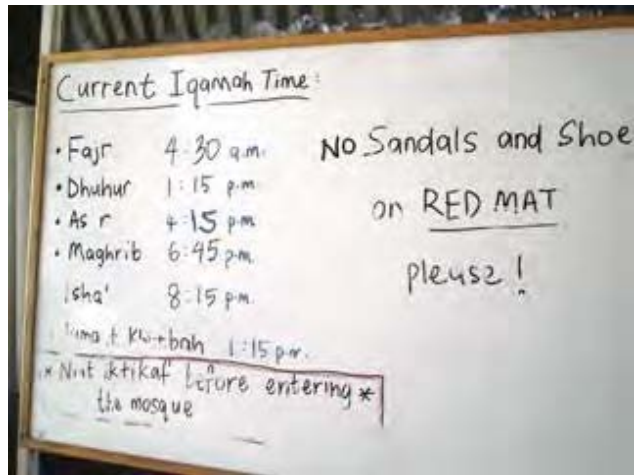 Current Iqamah Time:
• Fajr 4:30 a.m.
• Dhuhur 1:15 p.m
• Asr 4:15 pm
• Maghrib 6:45 p.m.
Isha' 8:15 p.m.
Khutbah 1:15 p.m.
* Niat iktikaf before entering *
the mosque
NO Sandals and Shoe
on RED MAT
please!